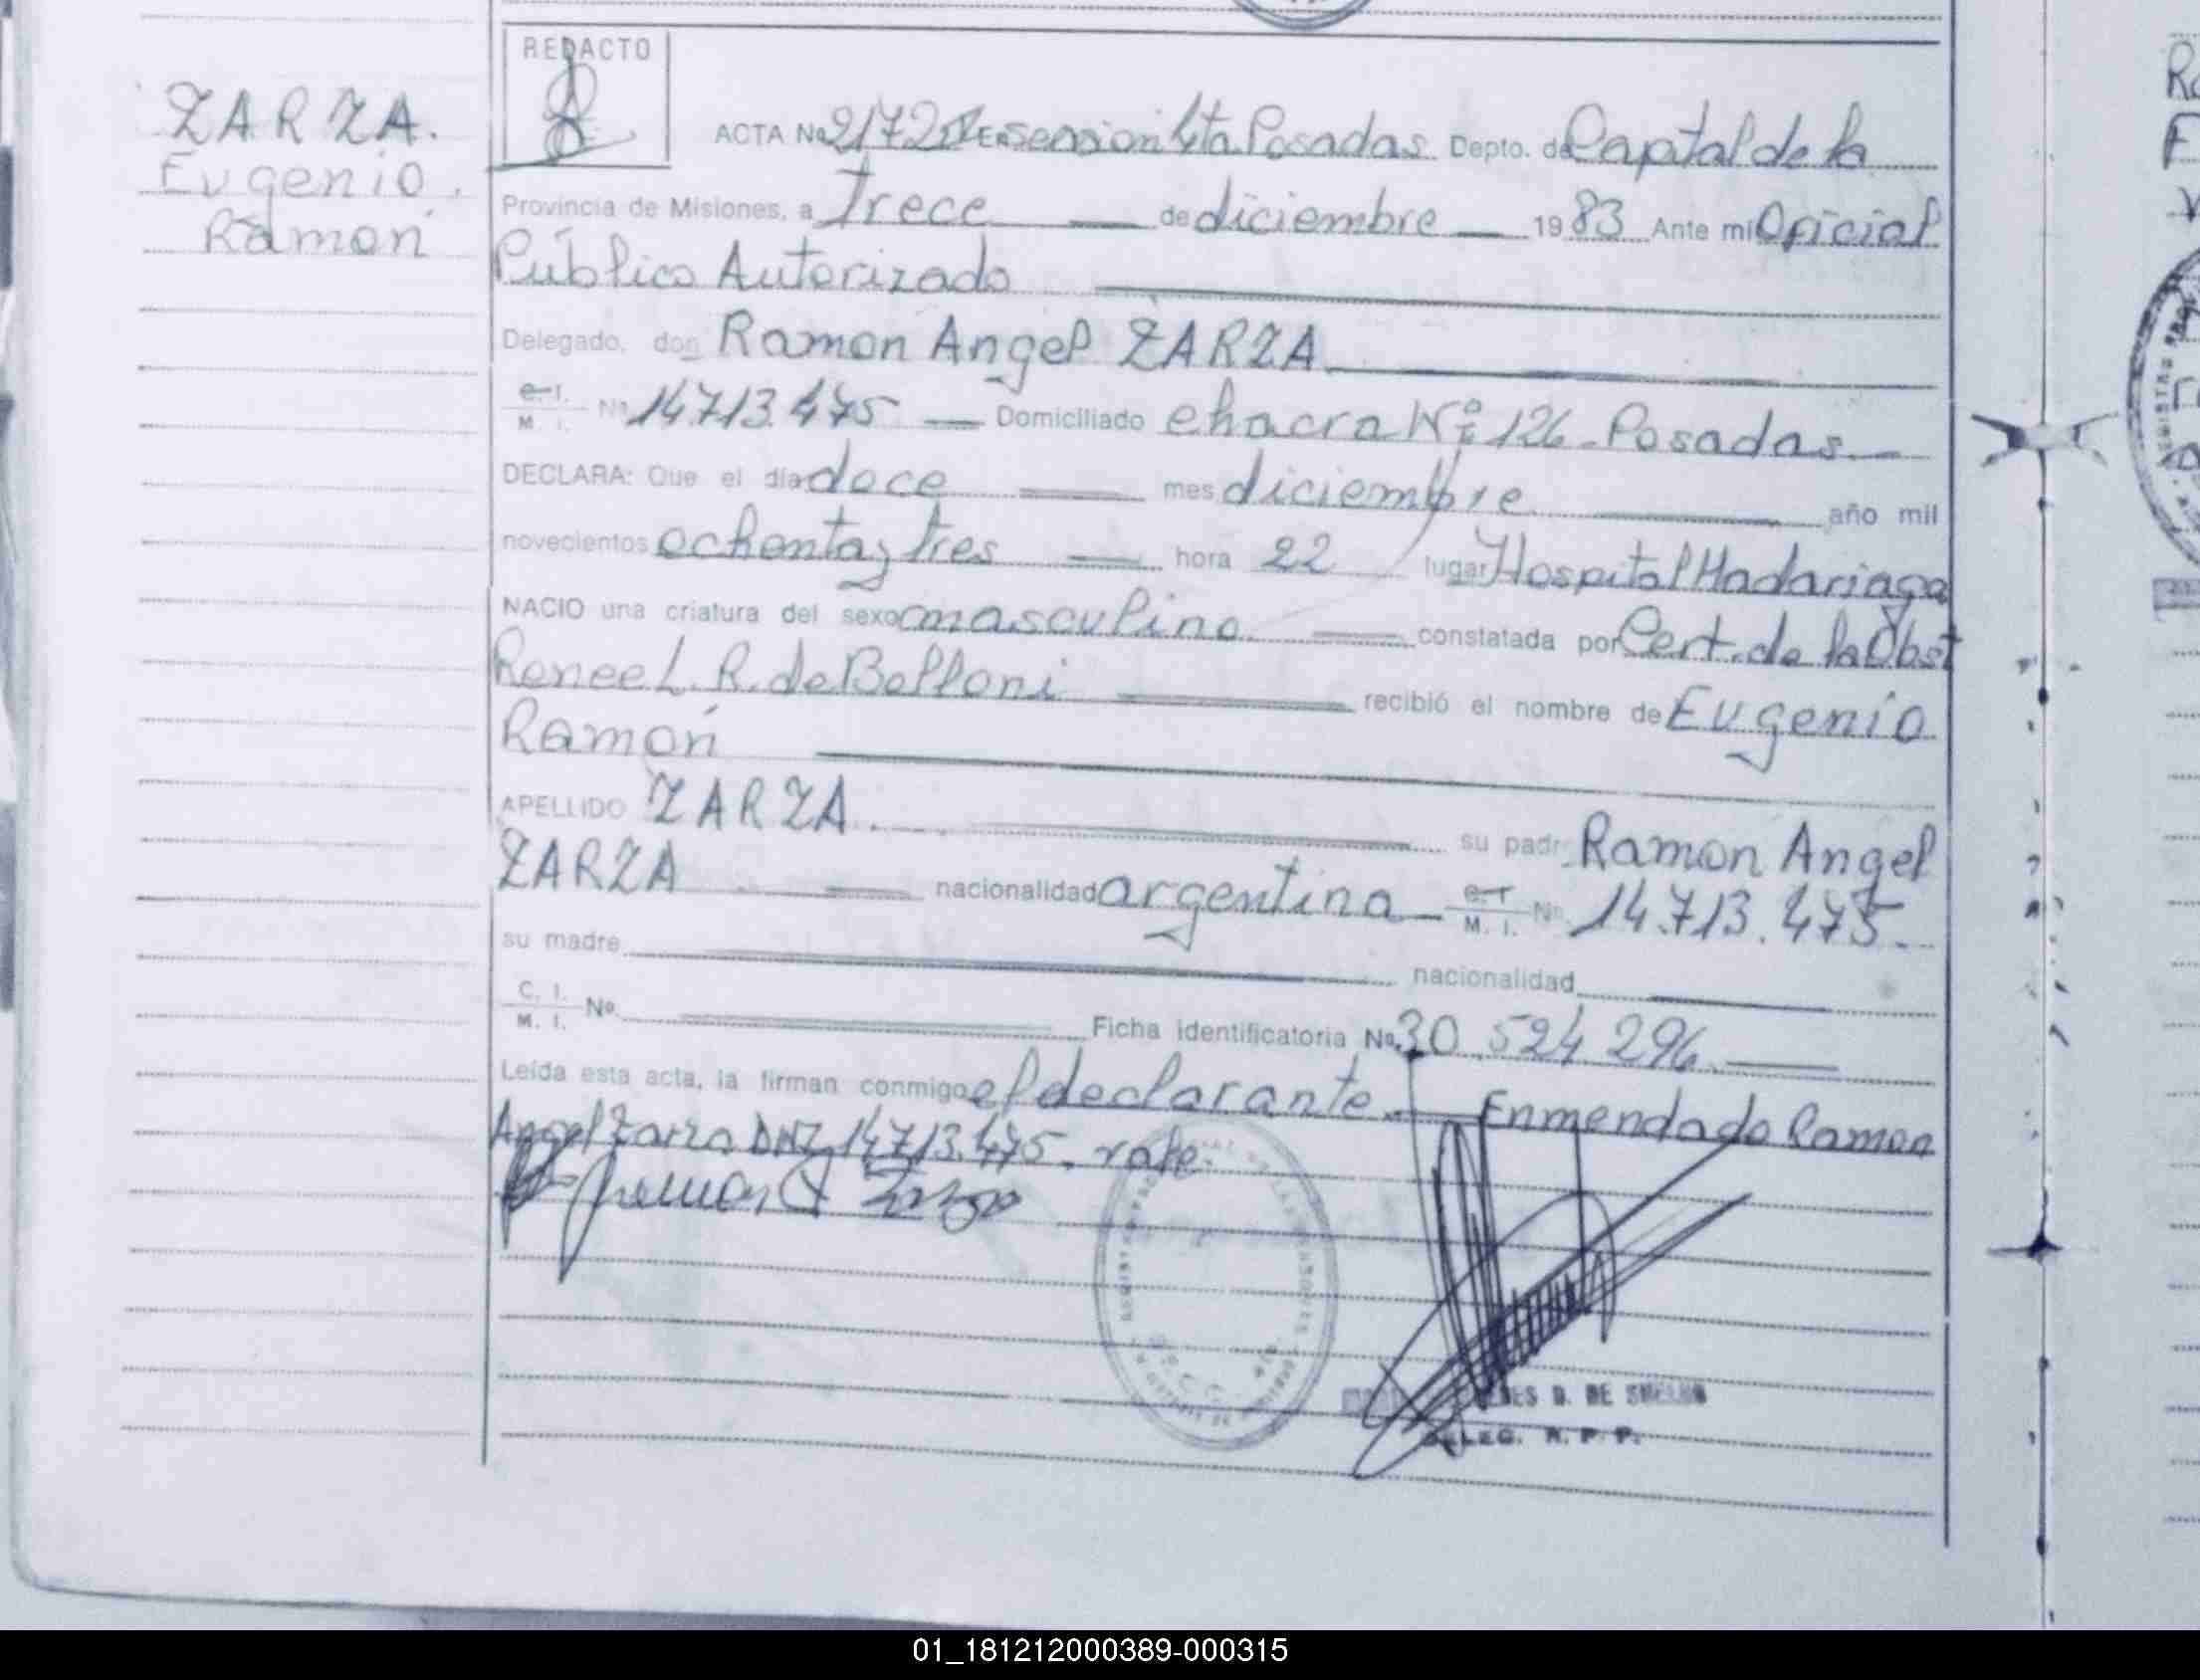 REDACTO
ZARZA.
Eugenio
Ramón
ACTA No 2172 Posadas Depto. de Capital de la
Provincia de Misiones, a Trece de diciembre 1983 Ante mi Oficial
Público Autorizado
Delegado, don Ramon Angel ZARZA
C. I. / M. I. No 14.713.475 Domiciliado chacra Nº 126 - Posadas
DECLARA: Que el día doce mes diciembre año mil
novecientos ochenta y tres hora 22 lugar Hospital Madariaga
NACIO una criatura del sexo masculino constatada por Cert. de la Obst
Renee L. R. de Belloni recibió el nombre de Eugenio
Ramón
APELLIDO ZARZA. su padre Ramon Angel
ZARZA nacionalidad argentina C. I. / M. I. No. 14.713.475.
su madre nacionalidad
C. I. / M. I. No. Ficha identificatoria No. 30.524 296
Leída esta acta, la firman conmigo el declarante. Enmendado Ramon
Angel Zarza DNI 14.713.475. vale.
DE
DELEG. R. P. P.
01_181212000389-000315